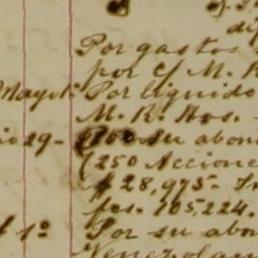 Por gastos
por c/ M. R
Mayo 1º Por liquido
M. R. Hos.
io 29- Por su abon
(250 Accione
$ 28,975- In
fcs. 105,224.
1º Por su abon
Venezolan